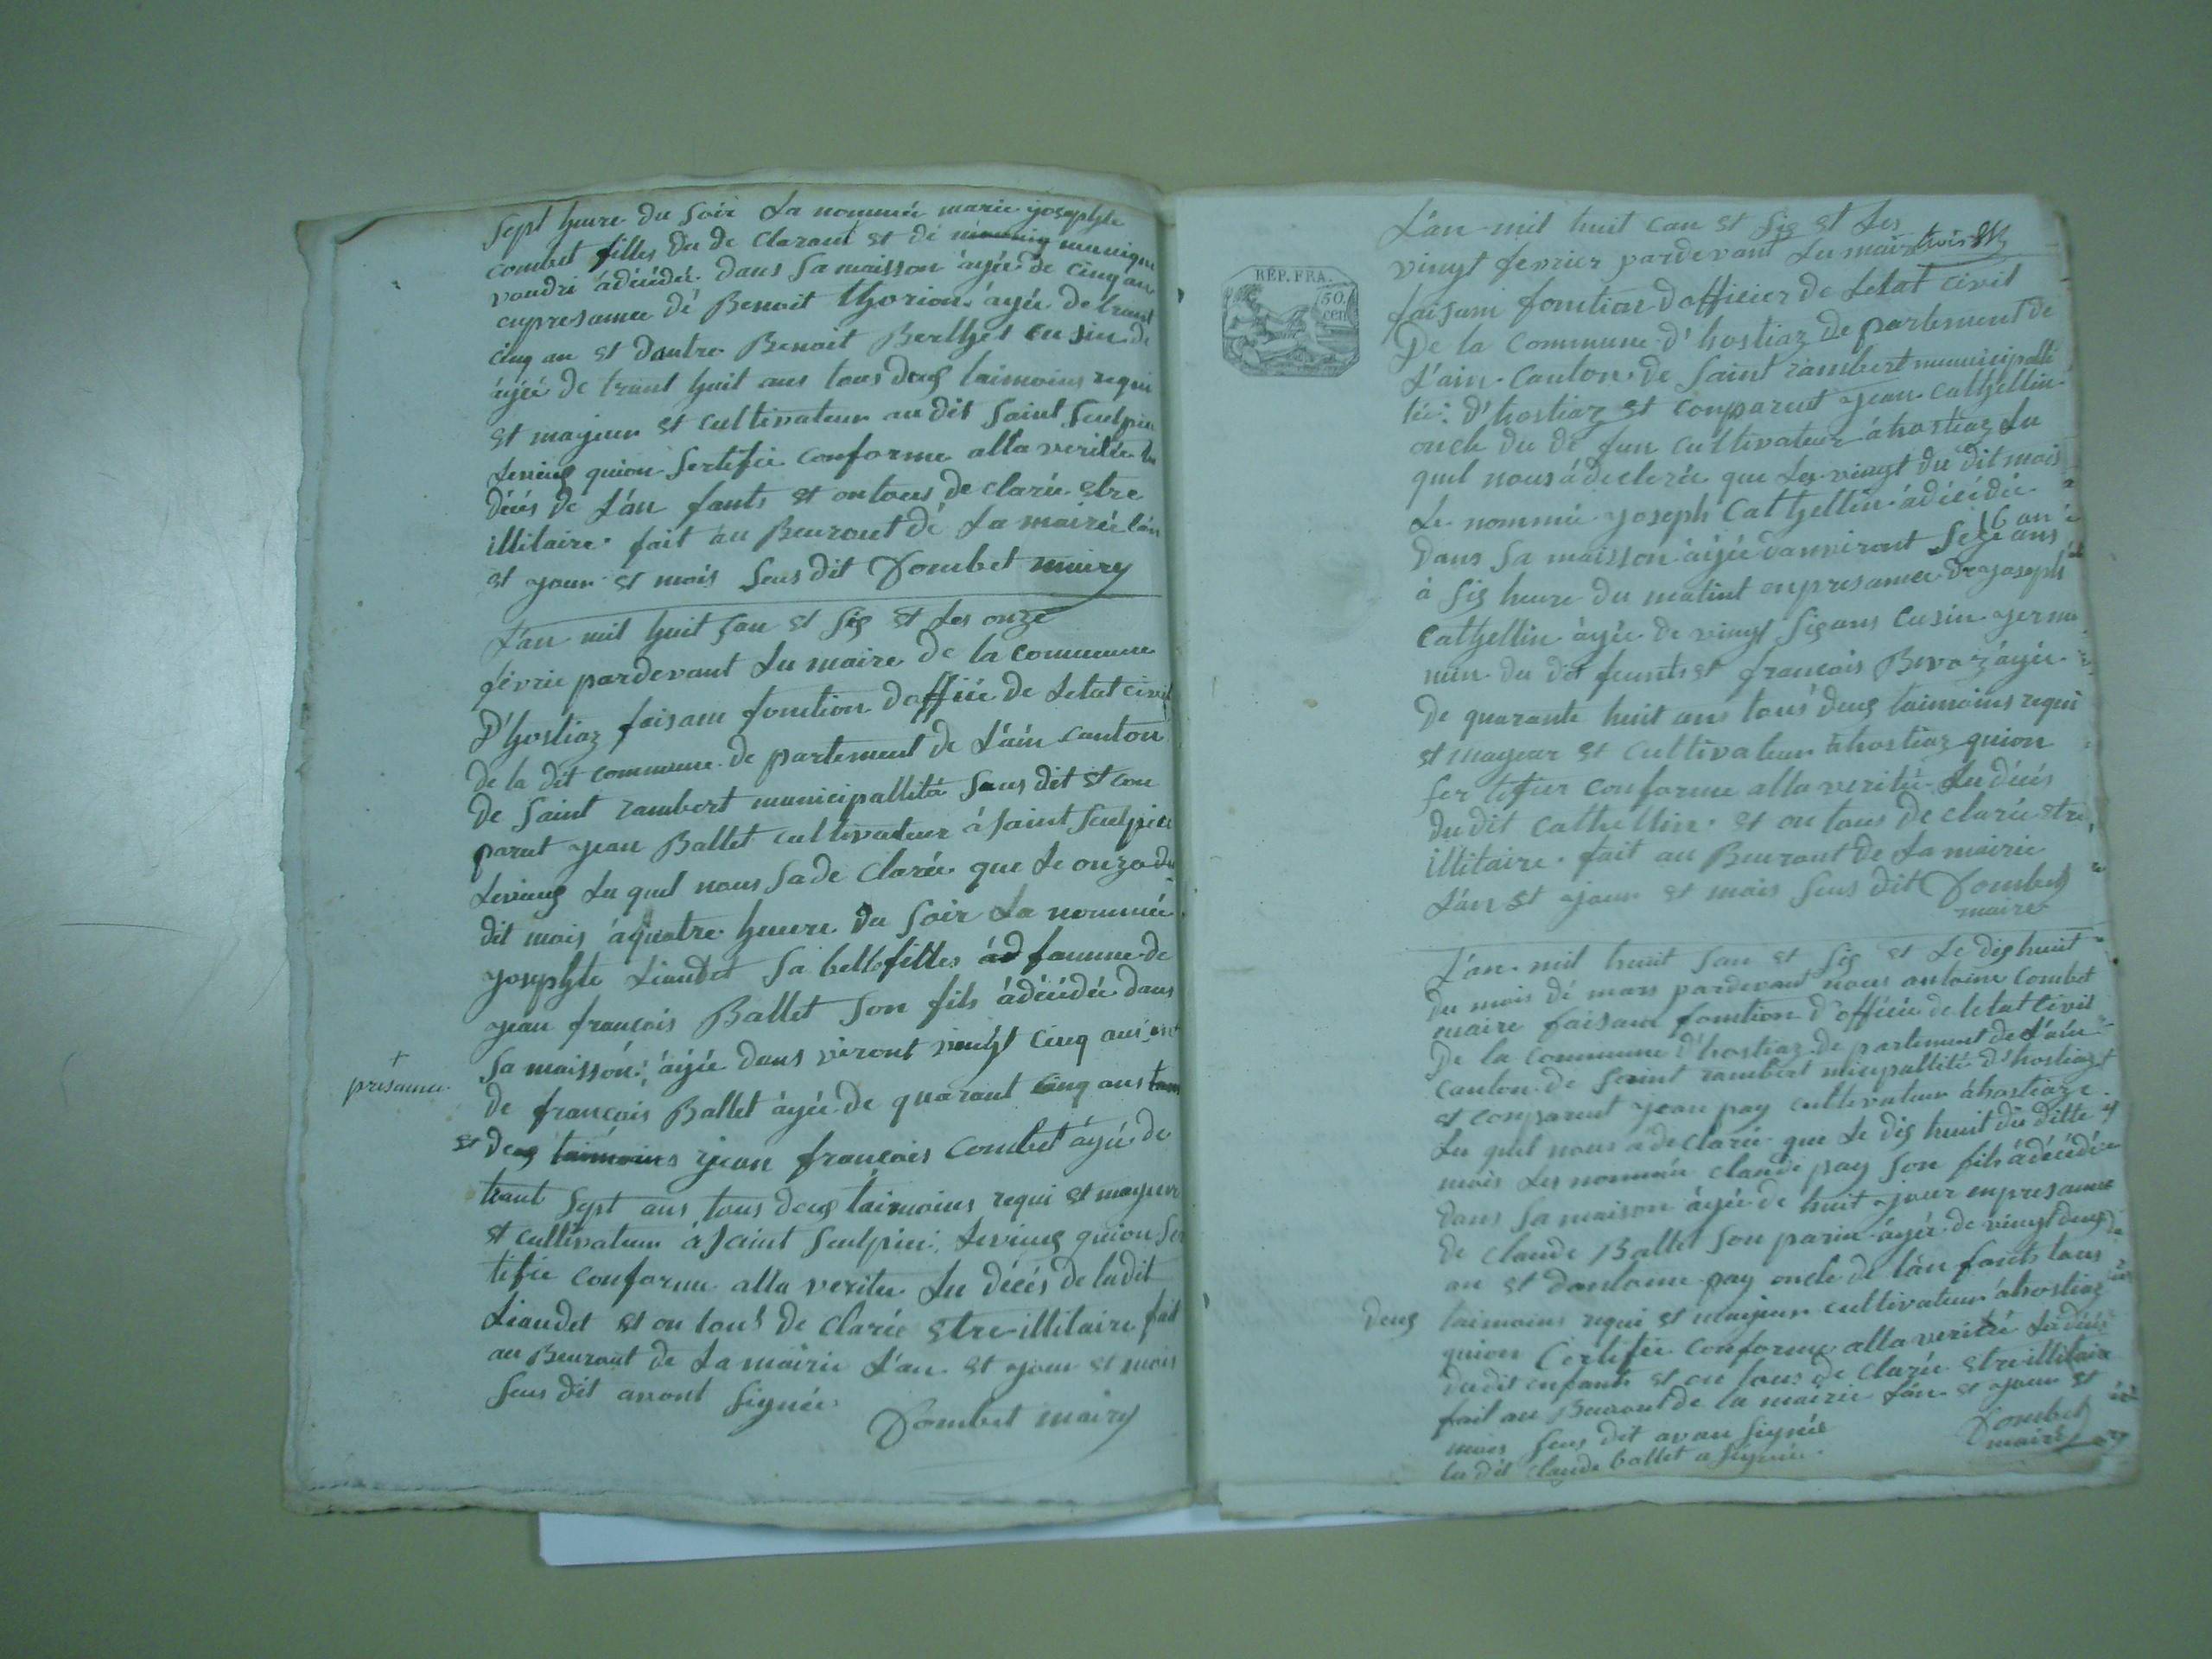 sept heure du soir La nommée marie josephte
combet filles du de Clarant et dé munique
vaudri ádéceédée dans sa maisson áyée de cinq an
enpresamce dé Benoit thorion áyée de trant
cinq an et dautre Benoit Berthet cusin de
áyée de trant huit ans tous deus taimoins requi
et mayeur et cultivateur au dit saint Sculpice
Levieus quion sertifie conforme alla veritée du
décés de L'án fants et on tous de clarée etre
illitaire. fait au Beuraut dé La mairée L'án
et your et mois sous dit Combet maire
L'an mil huit san et sis et Les onze
févrie pardevant Lu maire de la commune
D'hostiaz faisam fontion d'offiié de Letat civil
de la dit commune de partement de L'ain canton
de saint rambert municipallité sous dit et con
parut yean Ballet cultivateur á saint sculpice
Levieus Lu quel nous sa de Clarée que Le onze du
dit mois á quatre heuvre du soir La nommée
yosephte Liaudet sa belle filles ád famme de
yean françois Ballet son fils ádéceédée dans
sa maissón áyée dans viront vinht cinq ans en
+
presamce
de francois Ballet áyée de quarant cinq ans tous
et deus taimoins yean françois Combet áyée de
trant sept ans tous deus taimoins requi et mayeur
et cultivateur á saint sculpice Levieus quion ser
tifie conforme alla veritee Lu décés de ladit
Liaudet et on tous de clarée etre illitaire fait
au Beuraut de La mairie L'an et your et mois
sous dit avont signée
Combet maire
RÉP. FRA.
50.
cen
L'án mil huit can et sis et Les
vingt fevrier pardevant Lu maire
faisam fontion d'officier de Letat civil
De la Commune d'hostiaz de partement de
L'ain Canton de saint rambert municipalli
tée d'hostiaz et conparut yean Cathellin
oncle du dé fun cultivateur á hostiaz Lu
quel nous á declerée que Les vingt du dit mois
Le nommé yoseph Cathellin ádéceédée
16 an
dans sa maisson áiyée danviront seze ans
á sis heure du matint enpresamce de yoseph
Cathellin áyée de vingt sis ans cusin yerma
nin du dit feunts et francois Bevoz áyée
de quarante huit ans tous deus taimoins requi
et mayeur et cultivateur á hostiaz quion
sertifier conforme alla veritée Lu décés
du dit Cathellin et on tous de clarée etre
illitaire. fait au Beuraut de La mairie
L'án et your et mois sous dit Combet
maire
L'án mil huit san et sis et Le dis huit
du mois dé mars pardevant nous antoine Combet
maire faisam fontion d'offiiée de letat Civil
De la Commune d'hostiaz de partement de L'ain
canton de saint rambert mícipallité d'hostiaz
et conparut yean pay cultivateur á hostiaz
Lu quel nous á de clarée que Le dis huit du ditte
mois Les nommée claude pay son fils ádéceédée
dans sa maison áyée de huit your enpresamce
de claude Ballet son parin áyée de vingt deus
an et dantoine pay oncle de L'án fants tous
deus taimoins requi et mayeur cultivateur á hostiaz
quion Certifie conforme alla veritée Lu décés
dudit enfants et on tous de clarée etre illitaire
fait au Beuraut de la mairie L'án et your et
mois sous dit avan signée
Combet
maire
lu dit claude ballet a signée.